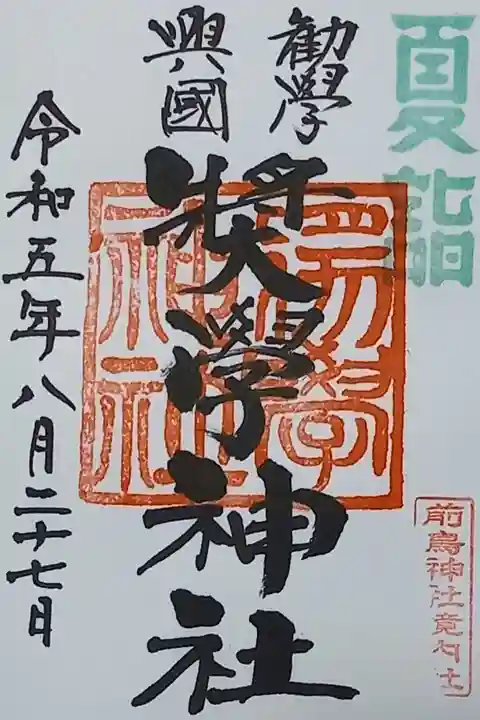 夏詣
前鳥神社境内社
勧學
興國
奬學神社
令和五年八月二十七日